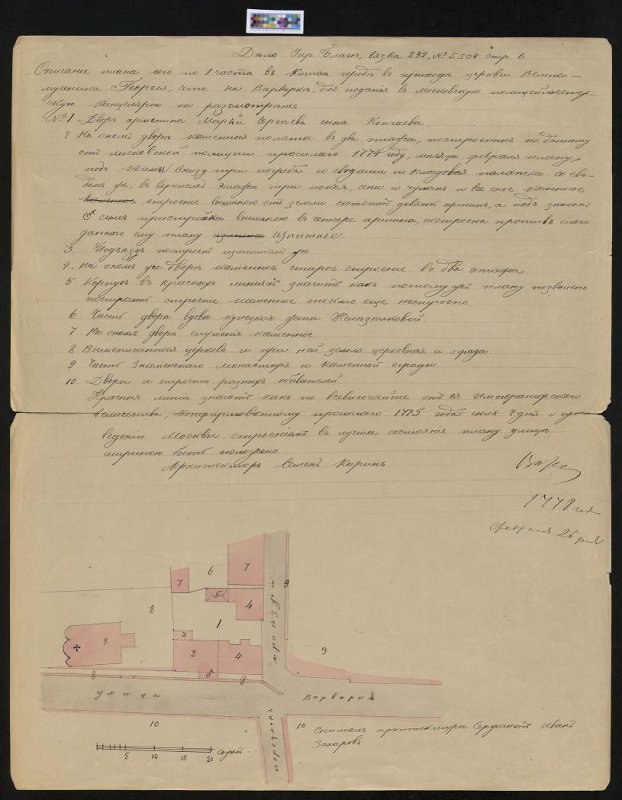 Дѣло Упр. Благоч. вязка 292, № 5504 стр. 6
Описание плана что по 1 части въ Китаѣ городѣ въ приходѣ церкви Велико-
мученика Георгия, что на Варваркѣ, для поданья въ Московскую полицеймейстер-
скую канцелярию на разсмотрѣние
№ 1 Дворъ армянина Сергѣева сына
2 На ономъ дворѣ каменныя полаты въ два этажа, построенныя по данному
отъ московской полиции прошлаго 1774 году, мѣсяца февраля плану,
подъ внизу три погреба со сводами и кладовая палатка со сво-
домъ же, въ верхнемъ этажѣ три покоя, сени и чуланъ и все оное каменное
каменное строение вышиною отъ земли состоитъ девять аршинъ, а подъ знакомъ
сыня пристройка вышиною въ четыре аршина, построена противъ онаго
даннаго ему плану излишне.
3. Подъѣздъ построенъ излишний же
4. На ономъ же дворѣ каменное старое строение въ два этажа
5 Корпусъ въ красныхъ линияхъ значитъ какъ по тому же плану позволено
построить строение каменное только еще не строено
6 Часть двора вдовы купецкой жены Желѣзниковой
7 На ономъ дворѣ строение каменное.
8 Вышеписанная церковь и при ней земля церковная и ограда
9 Часть Знаменскаго монастыря и каменной ограды
10. Дворы и строение разныхъ обывателей
Красныя линии значатъ какъ по всевысочайше отъ ея Императорскаго
величества, конфирмованному прошлаго 1775 года июля 7 дня о при-
ведении Москвы строениемъ въ лучшее состояние плану улицѣ
шириною быть положено.
Архитекторъ Семенъ Каринъ
1778 года
февраля 26 дня
7
6
7
9
5
4
8
1
проѣздъ
8
3
2
4
9
8
8
8
улица
Варварка
10
переулокъ
10
Снималъ архитектуры Сержантъ Иванъ
Захаровъ
5
10
15
20
Сажен